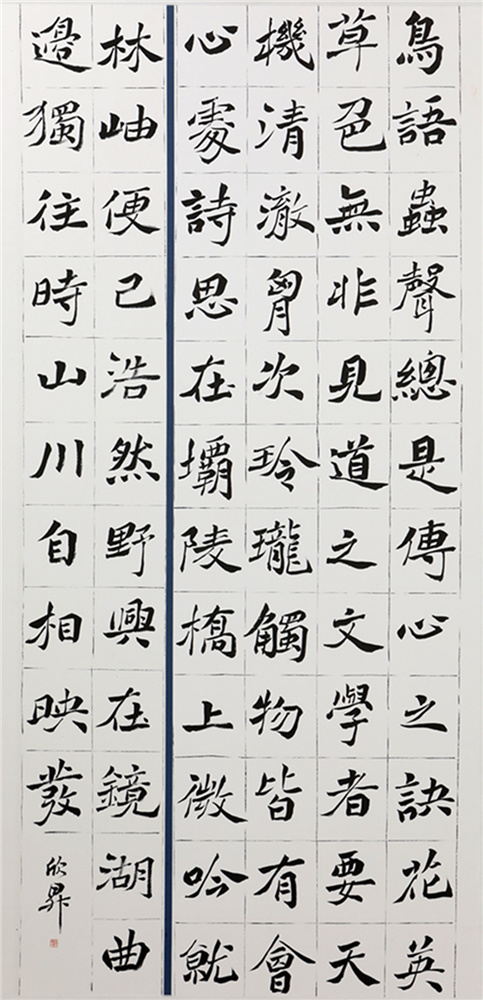 鳥語蟲聲總是傳心之訣花英
草色無非見道之文學者要天
機清澈胷次玲瓏觸物皆有會
心處詩思在壩陵橋上微吟就
林岫便已浩然野興在鏡湖曲
邊獨往時山川自相映發
欣昇